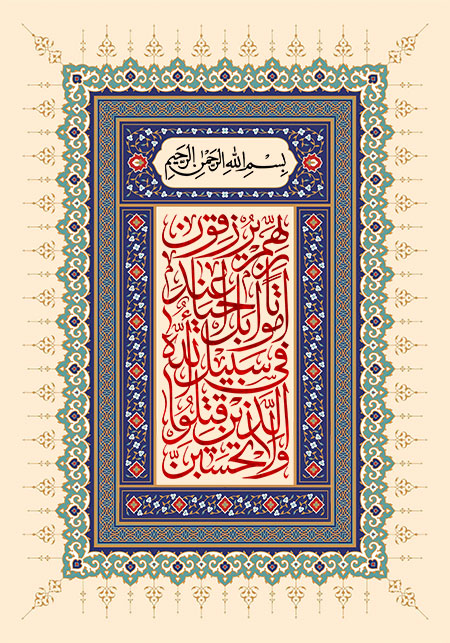 بِسْمِ اللهِ الرَّحْمٰنِ الرَّحِيمِ
وَلَا تَحْسَبَنَّ
الَّذِينَ قُتِلُوا
فِي سَبِيلِ اللَّهِ
أَمْوَاتًا بَلْ أَحْيَاءٌ عِنْدَ
رَبِّهِمْ يُرْزَقُونَ